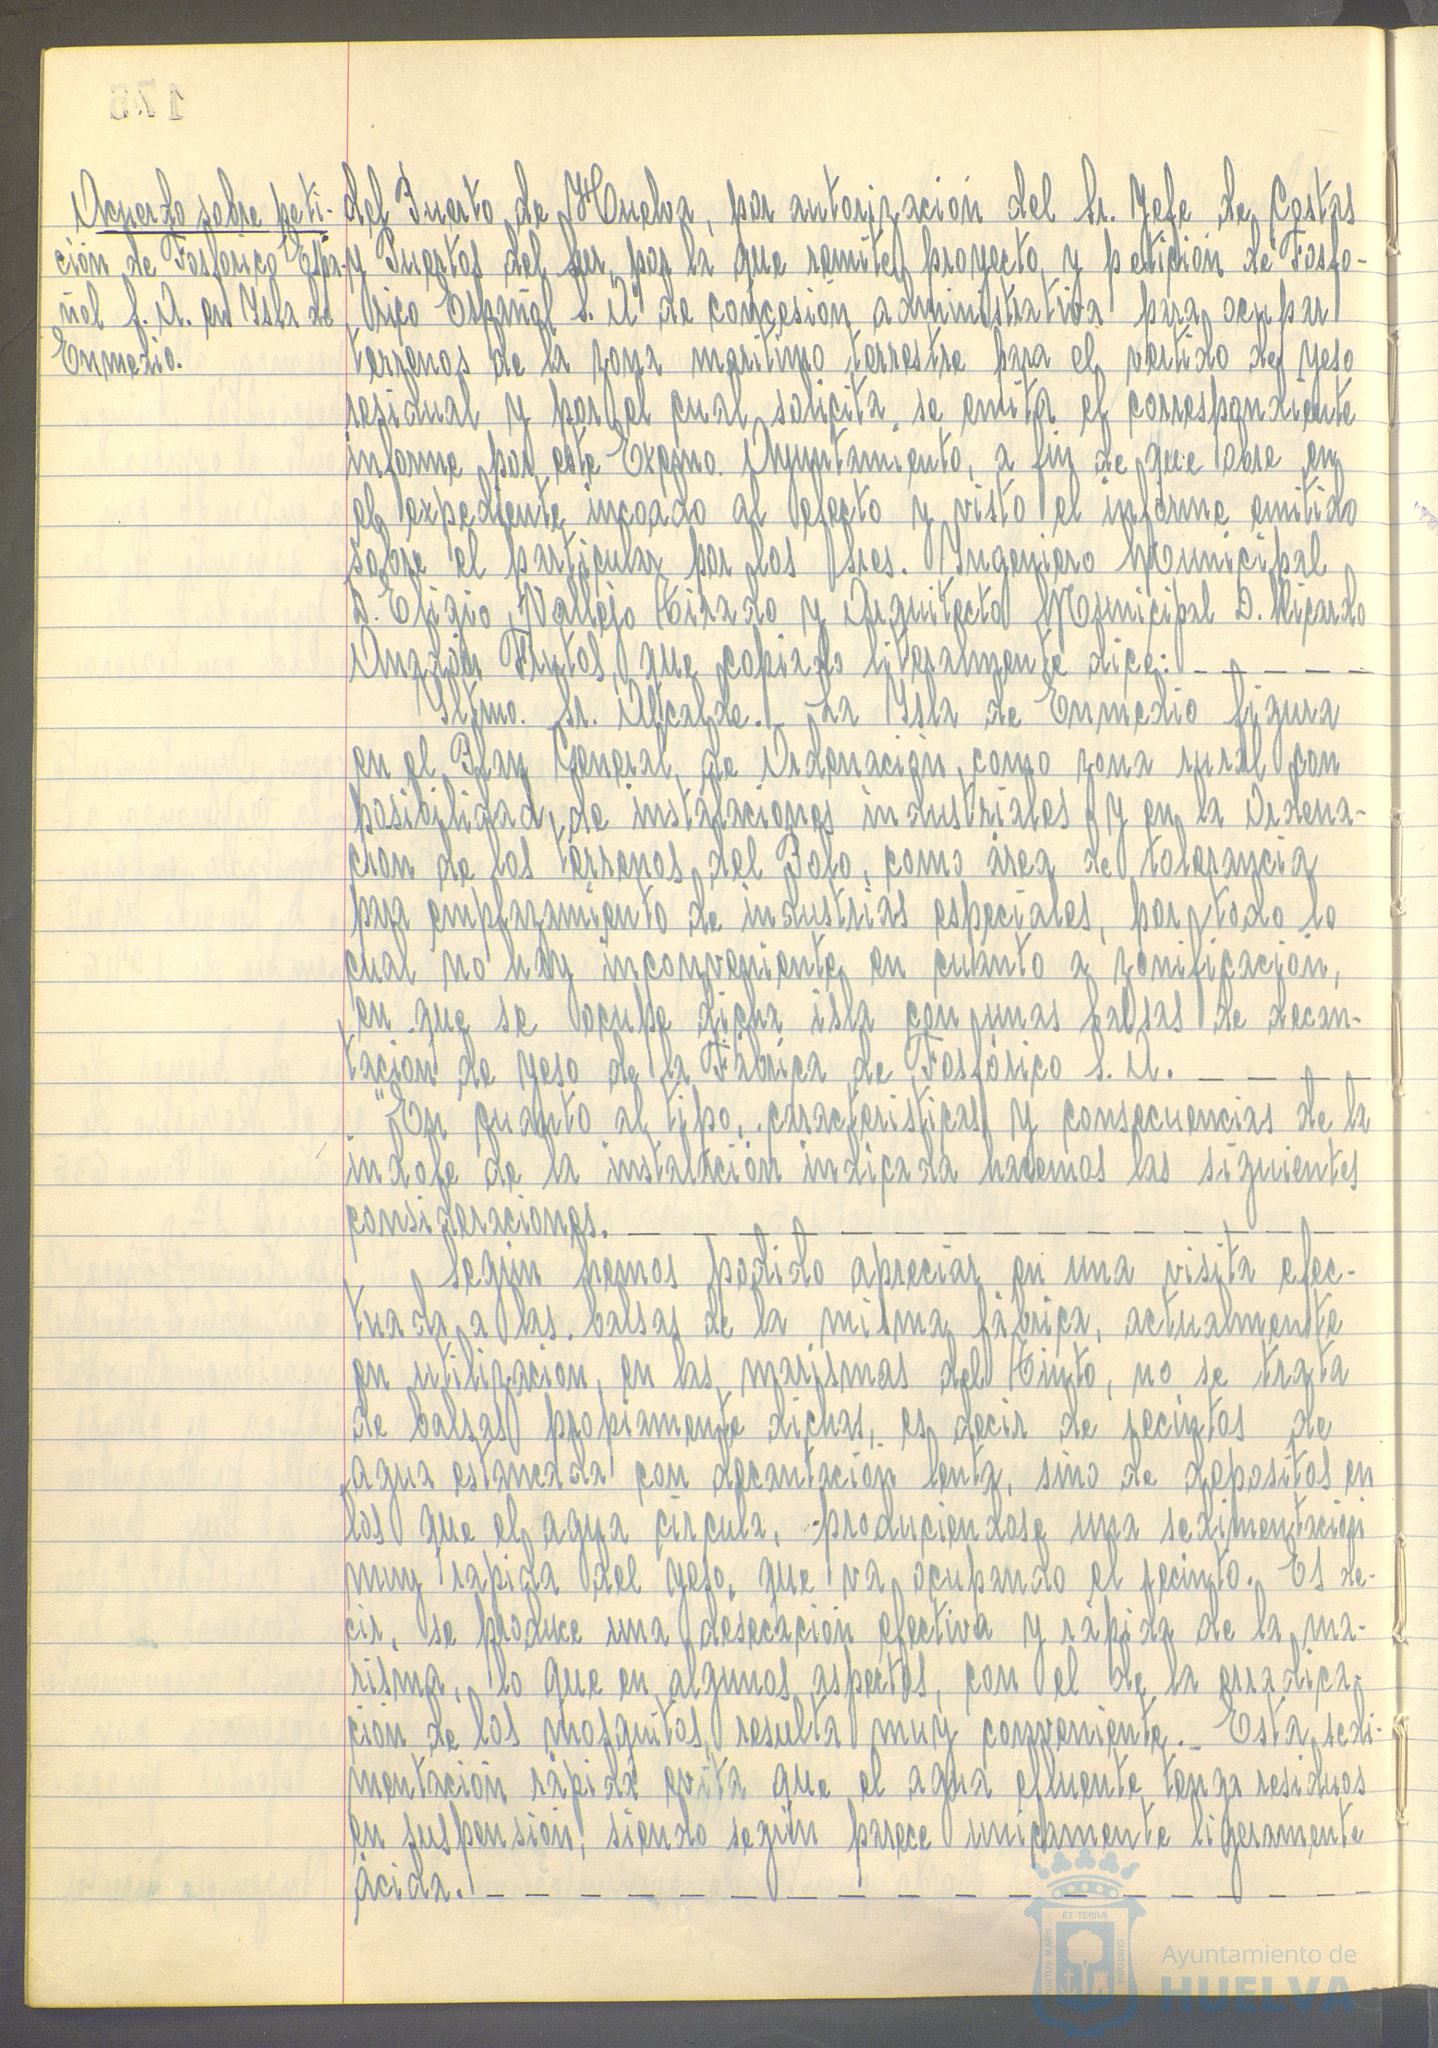 175
Acuerdo sobre peti-
ción de Fosforico Espa-
ñol S. A. en Isla de
Enmedio.
del Puerto de Huelva, por autorización del Sr. Jefe de Costas
y Puertos del Sur, por la que remite proyecto y petición de "Fosfo-
rico Español S. A" de concesión administrativa para ocupar
terrenos de la zona maritimo terrestre para el vertido de yeso
residual y por el cual solicita se emita el correspondiente
informe por este Excmo. Ayuntamiento, a fin de que obre en
el expediente incoado al efecto y visto el informe emitido
sobre el particular por los Sres. Ingeniero Municipal
D. Eligio Vallejo Tirado y Arquitecto Municipal D. Ricardo
Anadón Frutos, que copiado literalmente dice:
Iltmo. Sr. Alcalde. La Isla de Enmedio figura
en el Plan General de Ordenación, como zona rural con
posibilidad de instalaciones industriales y en la Ordena-
ción de los terrenos del Polo, como área de tolerancia
para emplazamiento de industrias especiales, por todo lo
cual no hay inconveniente en cuanto a zonificación,
en que se ocupe dicha isla con unas balsas de decan-
tación de yeso de la Fábrica de Fosfórico S. A.
"En cuanto al tipo, caracteristicas y consecuencias de la
indole de la instalación indicada hacemos las siguientes
consideraciones.
Según hemos podido apreciar en una visita efec-
tuada a las balsas de la misma fábrica, actualmente
en utilización, en las marismas del Tinto, no se trata
de balsas propiamente dichas, es decir de recintos de
agua estancada con decantación lenta, sino de depositos en
los que el agua circula, produciendose una sedimentación
muy rapida del yeso, que va ocupando el recinto. Es de-
cir, se produce una desecación efectiva y rápida de la ma-
risma, lo que en algunos aspectos, con el de la erradica-
ción de los mosquitos, resulta muy conveniente. Esta sedi-
mentación rápida evita que el agua efluente tenga residuos
en suspensión, siendo según parece unicamente ligeramente
ácida.
ET TERRA
PORTUS MARIS
CUSTODIA
Ayuntamiento de
HUELVA